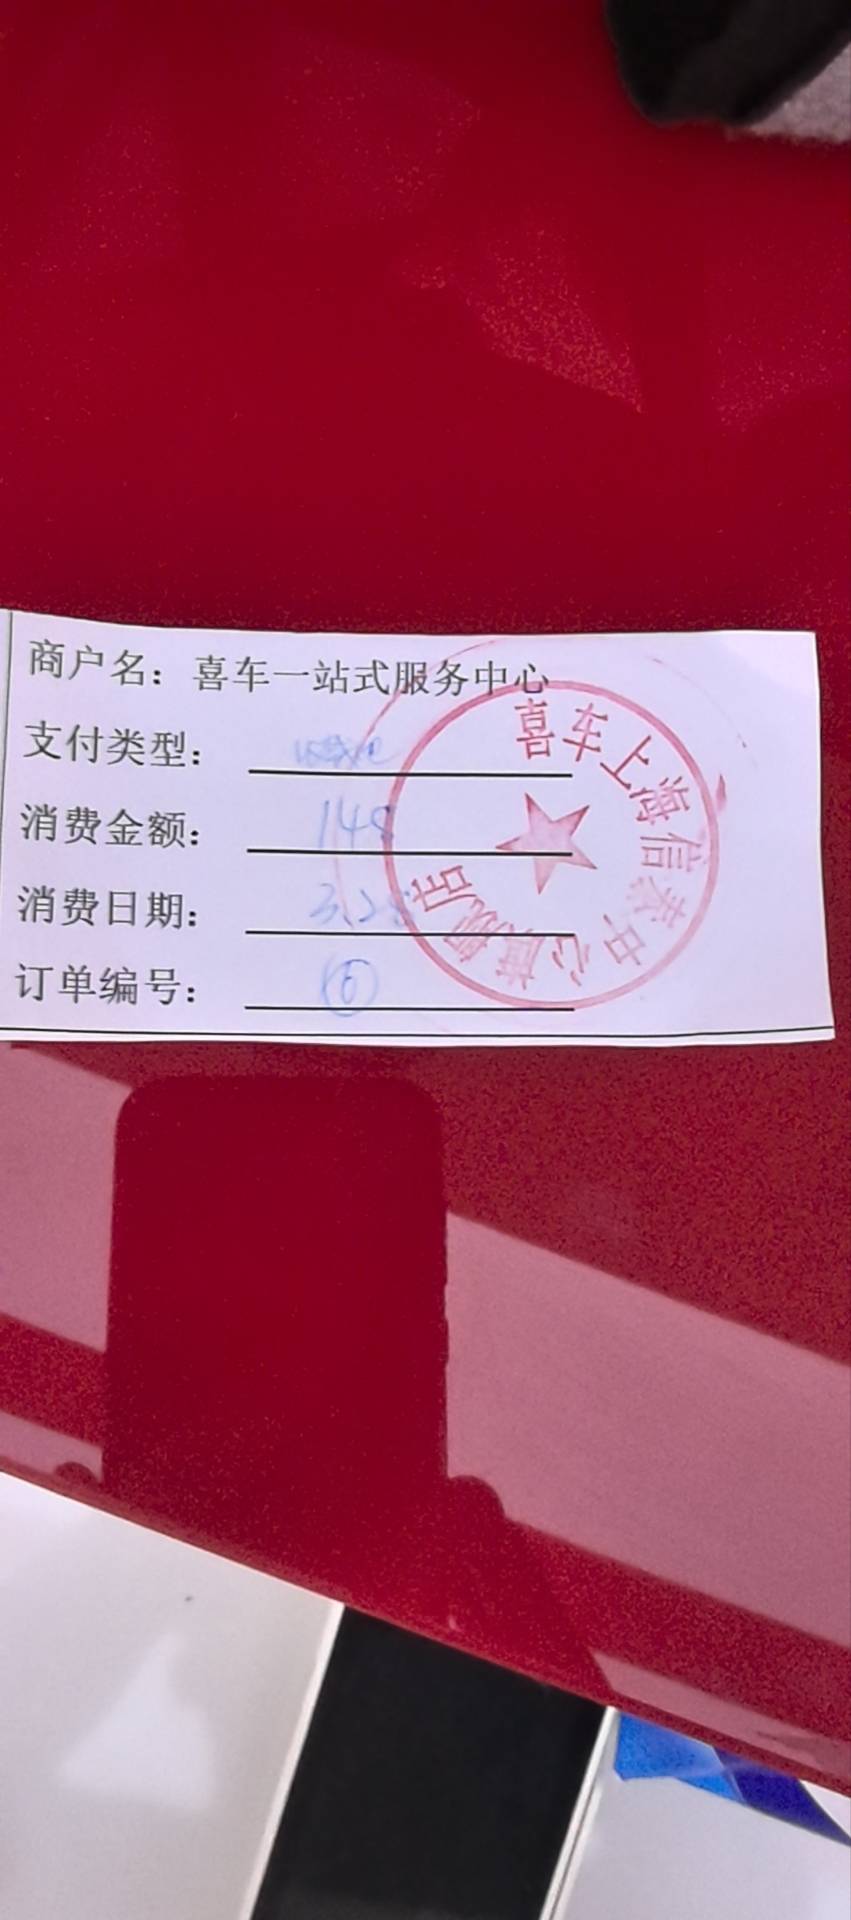 商户名：喜车一站式服务中心
支付类型：
消费金额：148
消费日期：3.28
订单编号：⑥
喜车上海信泰中心旗舰店